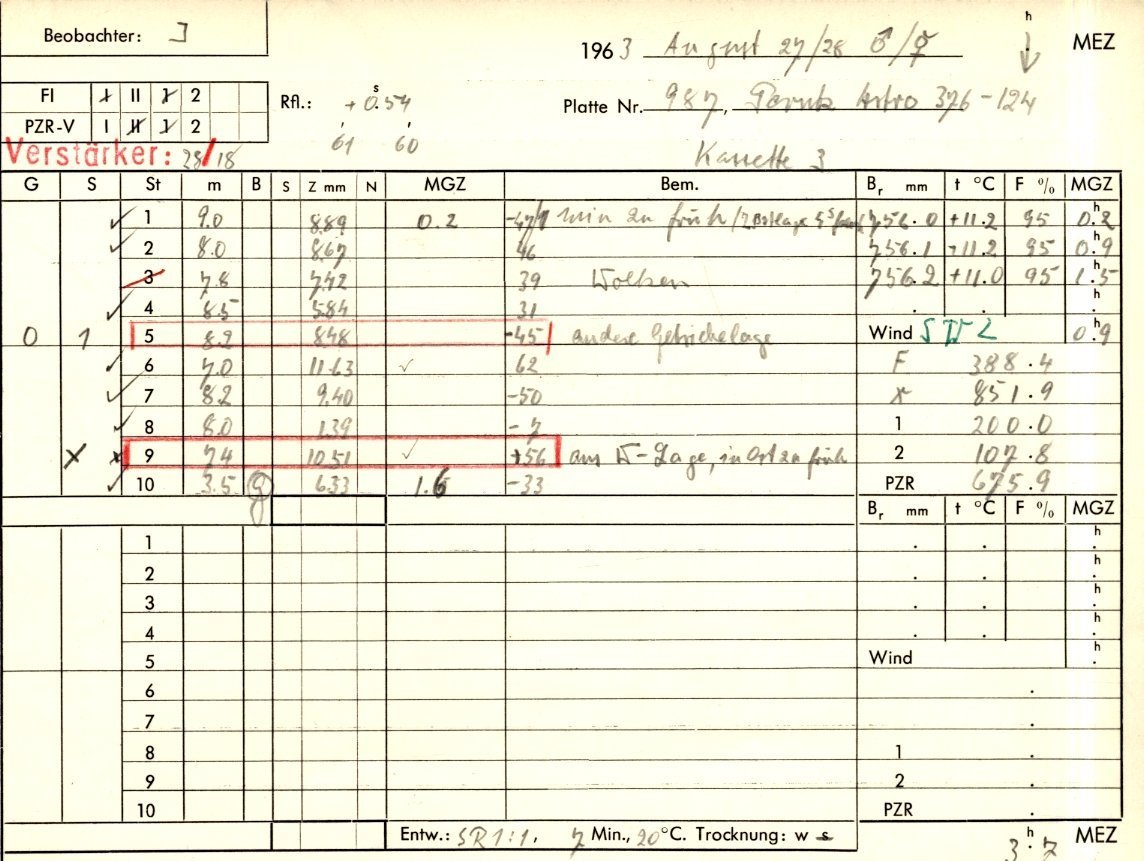 Beobachter: J
1963 August 27/28 ♂/☿ h MEZ
FI I II 1 2
Rfl.: +0.54 s
Platte Nr. 987, Astro 376-124
PZR-V I II 1 2
61 60
Verstärker: 28/18
Kassette 3
G S St m B S Z mm N MGZ Bem. Br mm t °C F % MGZ
1 9.0 8.89 0.2 -47 1 min zu früh 756.0 +11.2 95 0.2 h
2 8.0 8.67 46 756.1 +11.2 95 0.9 h
3 7.8 7.42 39 Wolken 756.2 +11.0 95 1.5 h
4 8.5 5.84 31 . . h
0 1 5 8.2 8.48 -45 andere Getriebelage Wind SW 2 0.9 h
6 7.0 11.63 ✓ 62 F 388.4
7 8.2 9.40 -50 x 851.9
8 8.0 1.39 -7 1 200.0
x x 9 7.4 10.51 ✓ +56 aus W-Lage, in Ost zu früh 2 107.8
10 3.5 g 6.33 1.6 -33 PZR 675.9
Br mm t °C F % MGZ
1 . . h
2 . . h
3 . . h
4 . . h
5 Wind h
6 .
7 .
8 1 .
9 2 .
10 PZR .
Entw.: SR 1:1, 7 Min., 20°C. Trocknung: w s
3.7 h MEZ